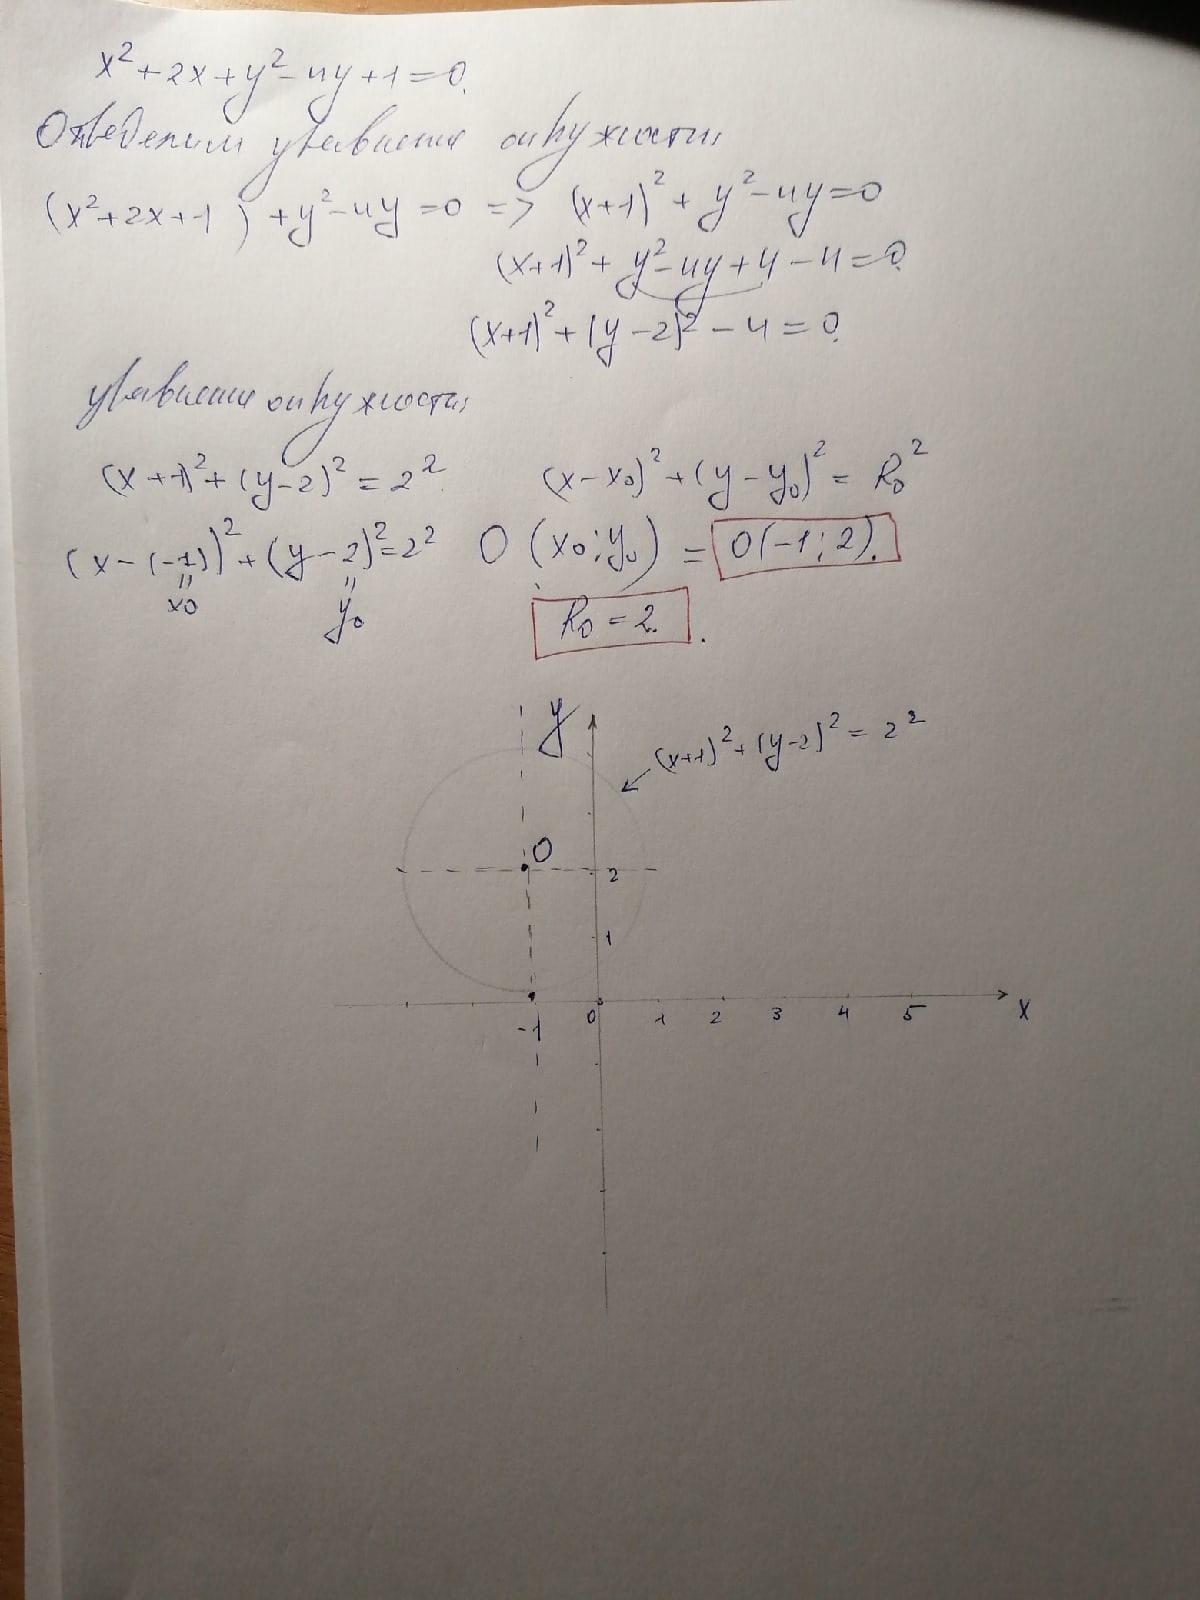 x²+2x+y²-4y+1=0.
Определим уравнение окружности:
(x²+2x+1)+y²-4y=0 => (x+1)²+y²-4y=0
(x+1)²+y²-4y+4-4=0.
(x+1)²+(y-2)²-4=0.
уравнение окружности:
(x+1)²+(y-2)²=2². (x-x₀)²+(y-y₀)²=R₀²
(x-(-1))²+(y-2)²=2² O(x₀;y₀)=O(-1;2).
x₀ y₀
R₀=2.
y
(x+1)²+(y-2)²=2²
O
2
1
-1 0 1 2 3 4 5 x